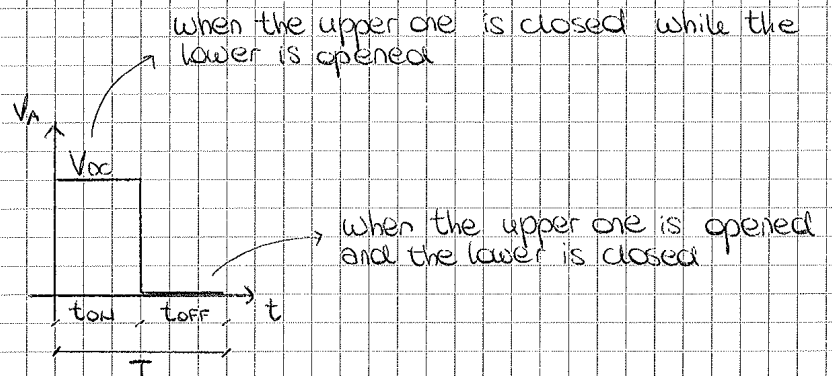 when the upper one is closed while the
lower is opened
VA
VDC
when the upper one is opened
and the lower is closed
tON
tOFF
t
T